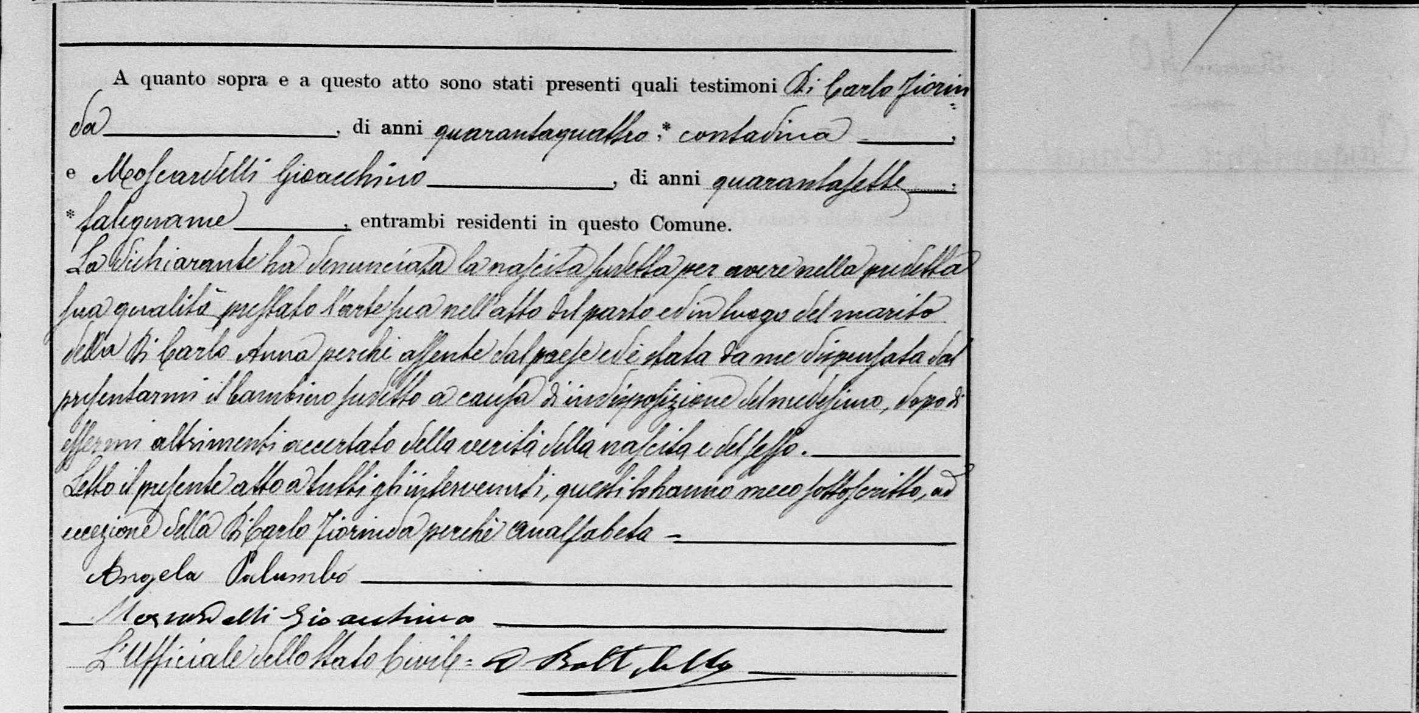 A quanto sopra e a questo atto sono stati presenti quali testimoni Di Carlo Fiorin
da, di anni quarantaquattro, * contadina,
e Moscardelli Gioacchino, di anni quarantasette,
* falegname, entrambi residenti in questo Comune.
La dichiarante ha denunciata la nascita sudetta per avere nella predetta
sua qualità prestato l'arte sua nell'atto del parto ed in luogo del marito
della Di Carlo Anna perchè assente dal paese ed è stata da me dispensata dal
presentarmi il bambino sudetto a causa di indisposizione del medesimo, dopo di
essermi altrimenti accertato della verità della nascita e del sesso.
Letto il presente atto a tutti gli intervenuti, questi lo hanno meco sottoscritto, ad
eccezione della Di Carlo Fiorinda perchè analfabeta =
Angela Palumbo
Moscardelli Gioacchino
L'Ufficiale dello Stato Civile =